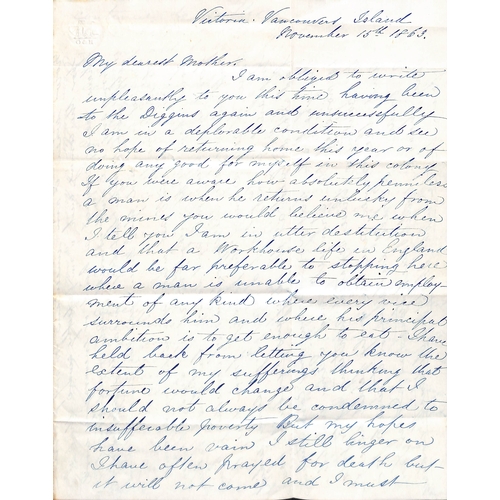 Victoria. Vancouvers Island
November 15th 1863.
My dearest Mother.
I am obliged to write
unpleasantly to you this time having been
to the Diggins again and unsuccessfully
I am in a deplorable condition and see
no hope of returning home this year or of
doing any good for myself in this colony
If you were aware how absolutely penniless
a man is when he returns unlucky from
the mines you would believe me when
I tell you I am in utter destitution
and that a Workhouse life in England
would be far preferable to stopping here
where a man is unable to obtain employ
ment of any kind where every vice
surrounds him and where his principal
ambition is to get enough to eat - I have
held back from letting you know the
extent of my sufferings thinking that
fortune would change and that I
should not always be condemned to
insufferable poverty But my hopes
have been vain I still linger on
I have often prayed for death but
it will not come and I must